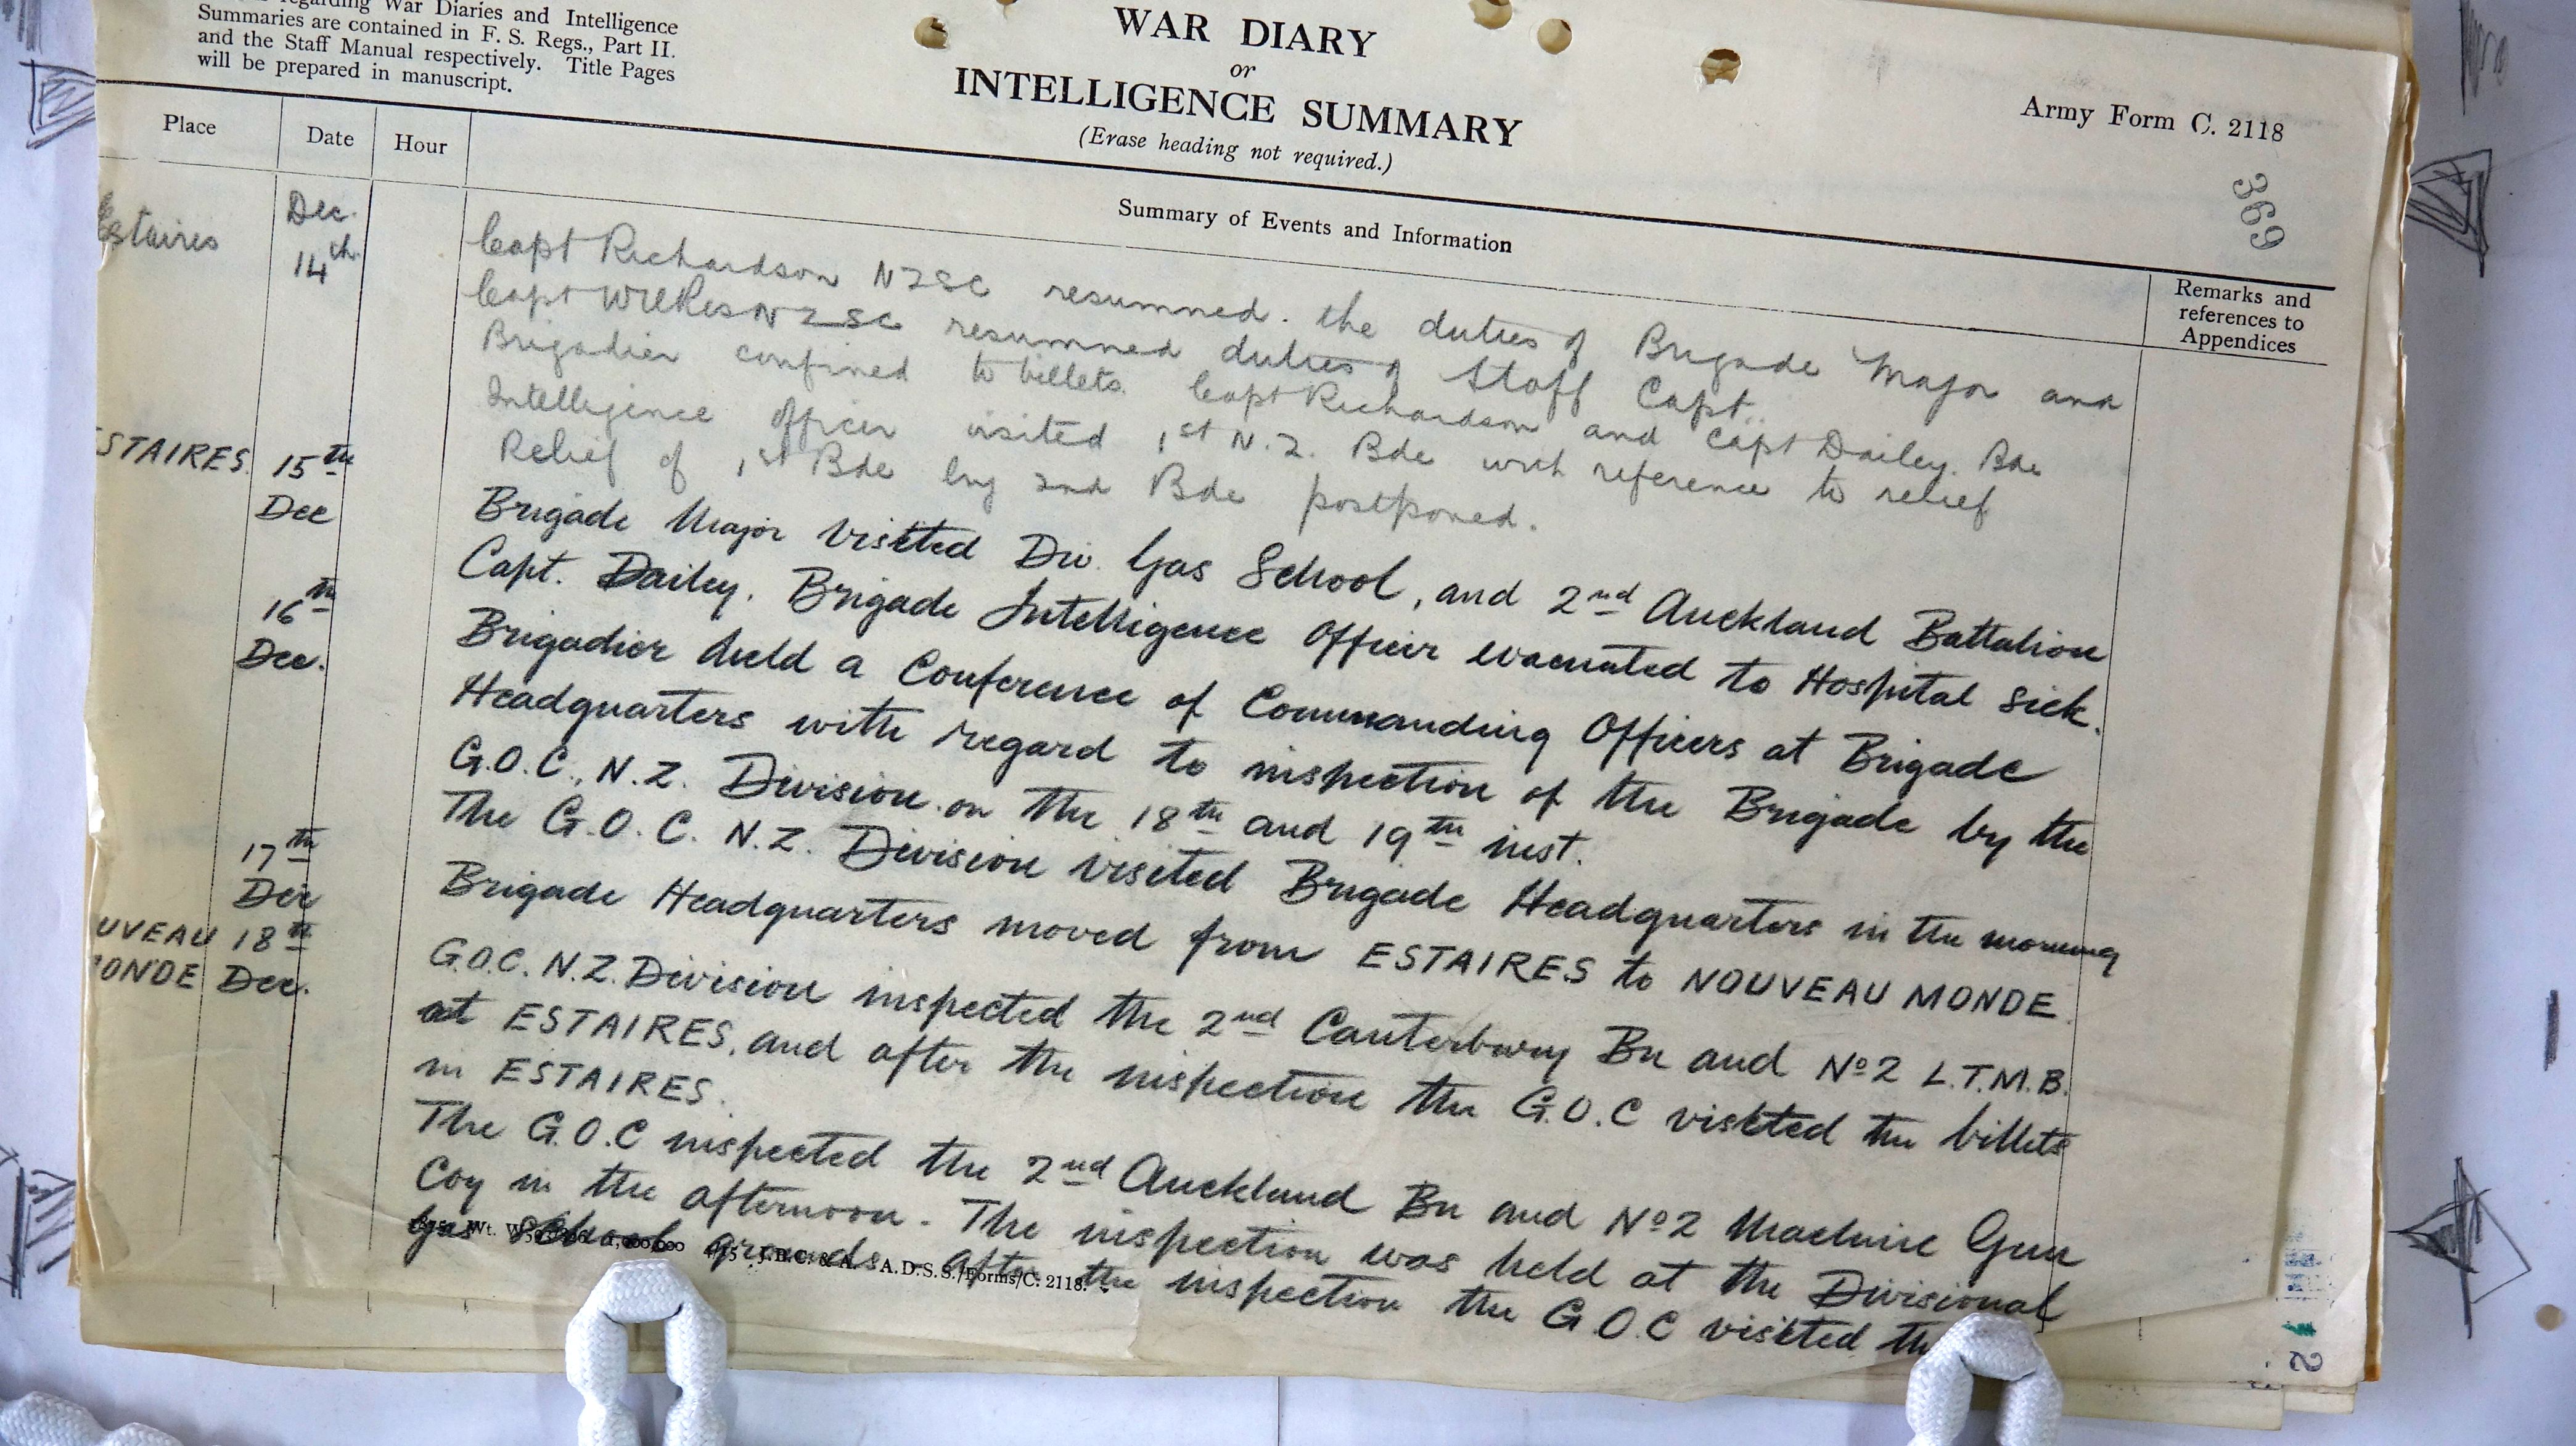 regarding War Diaries and Intelligence
Summaries are contained in F. S. Regs., Part II.
and the Staff Manual respectively. Title Pages
will be prepared in manuscript.
WAR DIARY
or
INTELLIGENCE SUMMARY
(Erase heading not required.)
Army Form C. 2118
369
Place
Date
Hour
Summary of Events and Information
Remarks and
references to
Appendices
Estaires
Dec.
14th
Capt Richardson NZSC resumned. the duties of Brigade Major and
Capt Wilkes NZSC resumned duties of Staff Capt.
Brigadier confined to billets. Capt Richardson and Capt Dailey. Bde
Intelligence Officer visited 1st N.Z. Bde with reference to relief
Relief of 1st Bde by 2nd Bde postponed.
STAIRES. 15th
Dec
Brigade Major visited Div. Gas School, and 2nd Auckland Battalion
Capt. Dailey, Brigade Intelligence Officer evacuated to Hospital sick.
16th
Dec.
Brigadier held a Conference of Commanding Officers at Brigade
Headquarters with regard to inspection of the Brigade by the
G.O.C., N.Z. Division on the 18th and 19th inst.
The G.O.C. N.Z. Division visited Brigade Headquarters in the morning
17th
Dec
Brigade Headquarters moved from ESTAIRES to NOUVEAU MONDE.
UVEAU 18th
ONDE Dec.
G.O.C. N.Z. Division inspected the 2nd Canterbury Bn and No 2 L.T.M.B.
at ESTAIRES, and after the inspection the G.O.C visited the billets
in ESTAIRES.
The G.O.C inspected the 2nd Auckland Bn and No 2 Machine Gun
Coy in the afternoon. The inspection was held at the Divisional
Gas School grounds. After the inspection the G.O.C visited th
Wt. 1,000,000 J.B.C. & A. A.D.S.S./Forms/C. 2118.
2